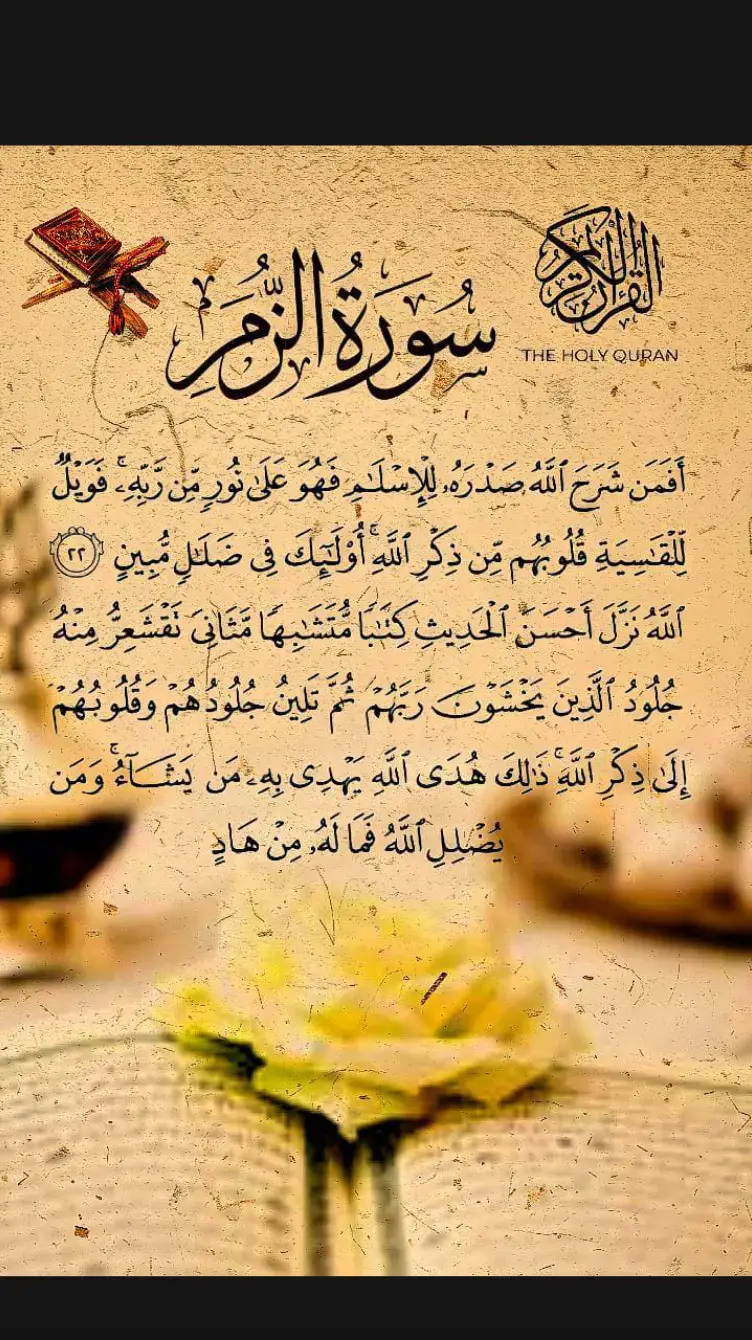 القرآن الكريم
THE HOLY QURAN
سُورَةُ الزُّمَرِ
أَفَمَن شَرَحَ ٱللَّهُ صَدْرَهُۥ لِلْإِسْلَٰمِ فَهُوَ عَلَىٰ نُورٍ مِّن رَّبِّهِۦۚ فَوَيْلٌ
لِّلْقَٰسِيَةِ قُلُوبُهُم مِّن ذِكْرِ ٱللَّهِۚ أُو۟لَٰٓئِكَ فِى ضَلَٰلٍ مُّبِينٍ ٢٢
ٱللَّهُ نَزَّلَ أَحْسَنَ ٱلْحَدِيثِ كِتَٰبًا مُّتَشَٰبِهًا مَّثَانِىَ تَقْشَعِرُّ مِنْهُ
جُلُودُ ٱلَّذِينَ يَخْشَوْنَ رَبَّهُمْ ثُمَّ تَلِينُ جُلُودُهُمْ وَقُلُوبُهُمْ
إِلَىٰ ذِكْرِ ٱللَّهِۚ ذَٰلِكَ هُدَى ٱللَّهِ يَهْدِى بِهِۦ مَن يَشَآءُۚ وَمَن
يُضْلِلِ ٱللَّهُ فَمَا لَهُۥ مِنْ هَادٍ